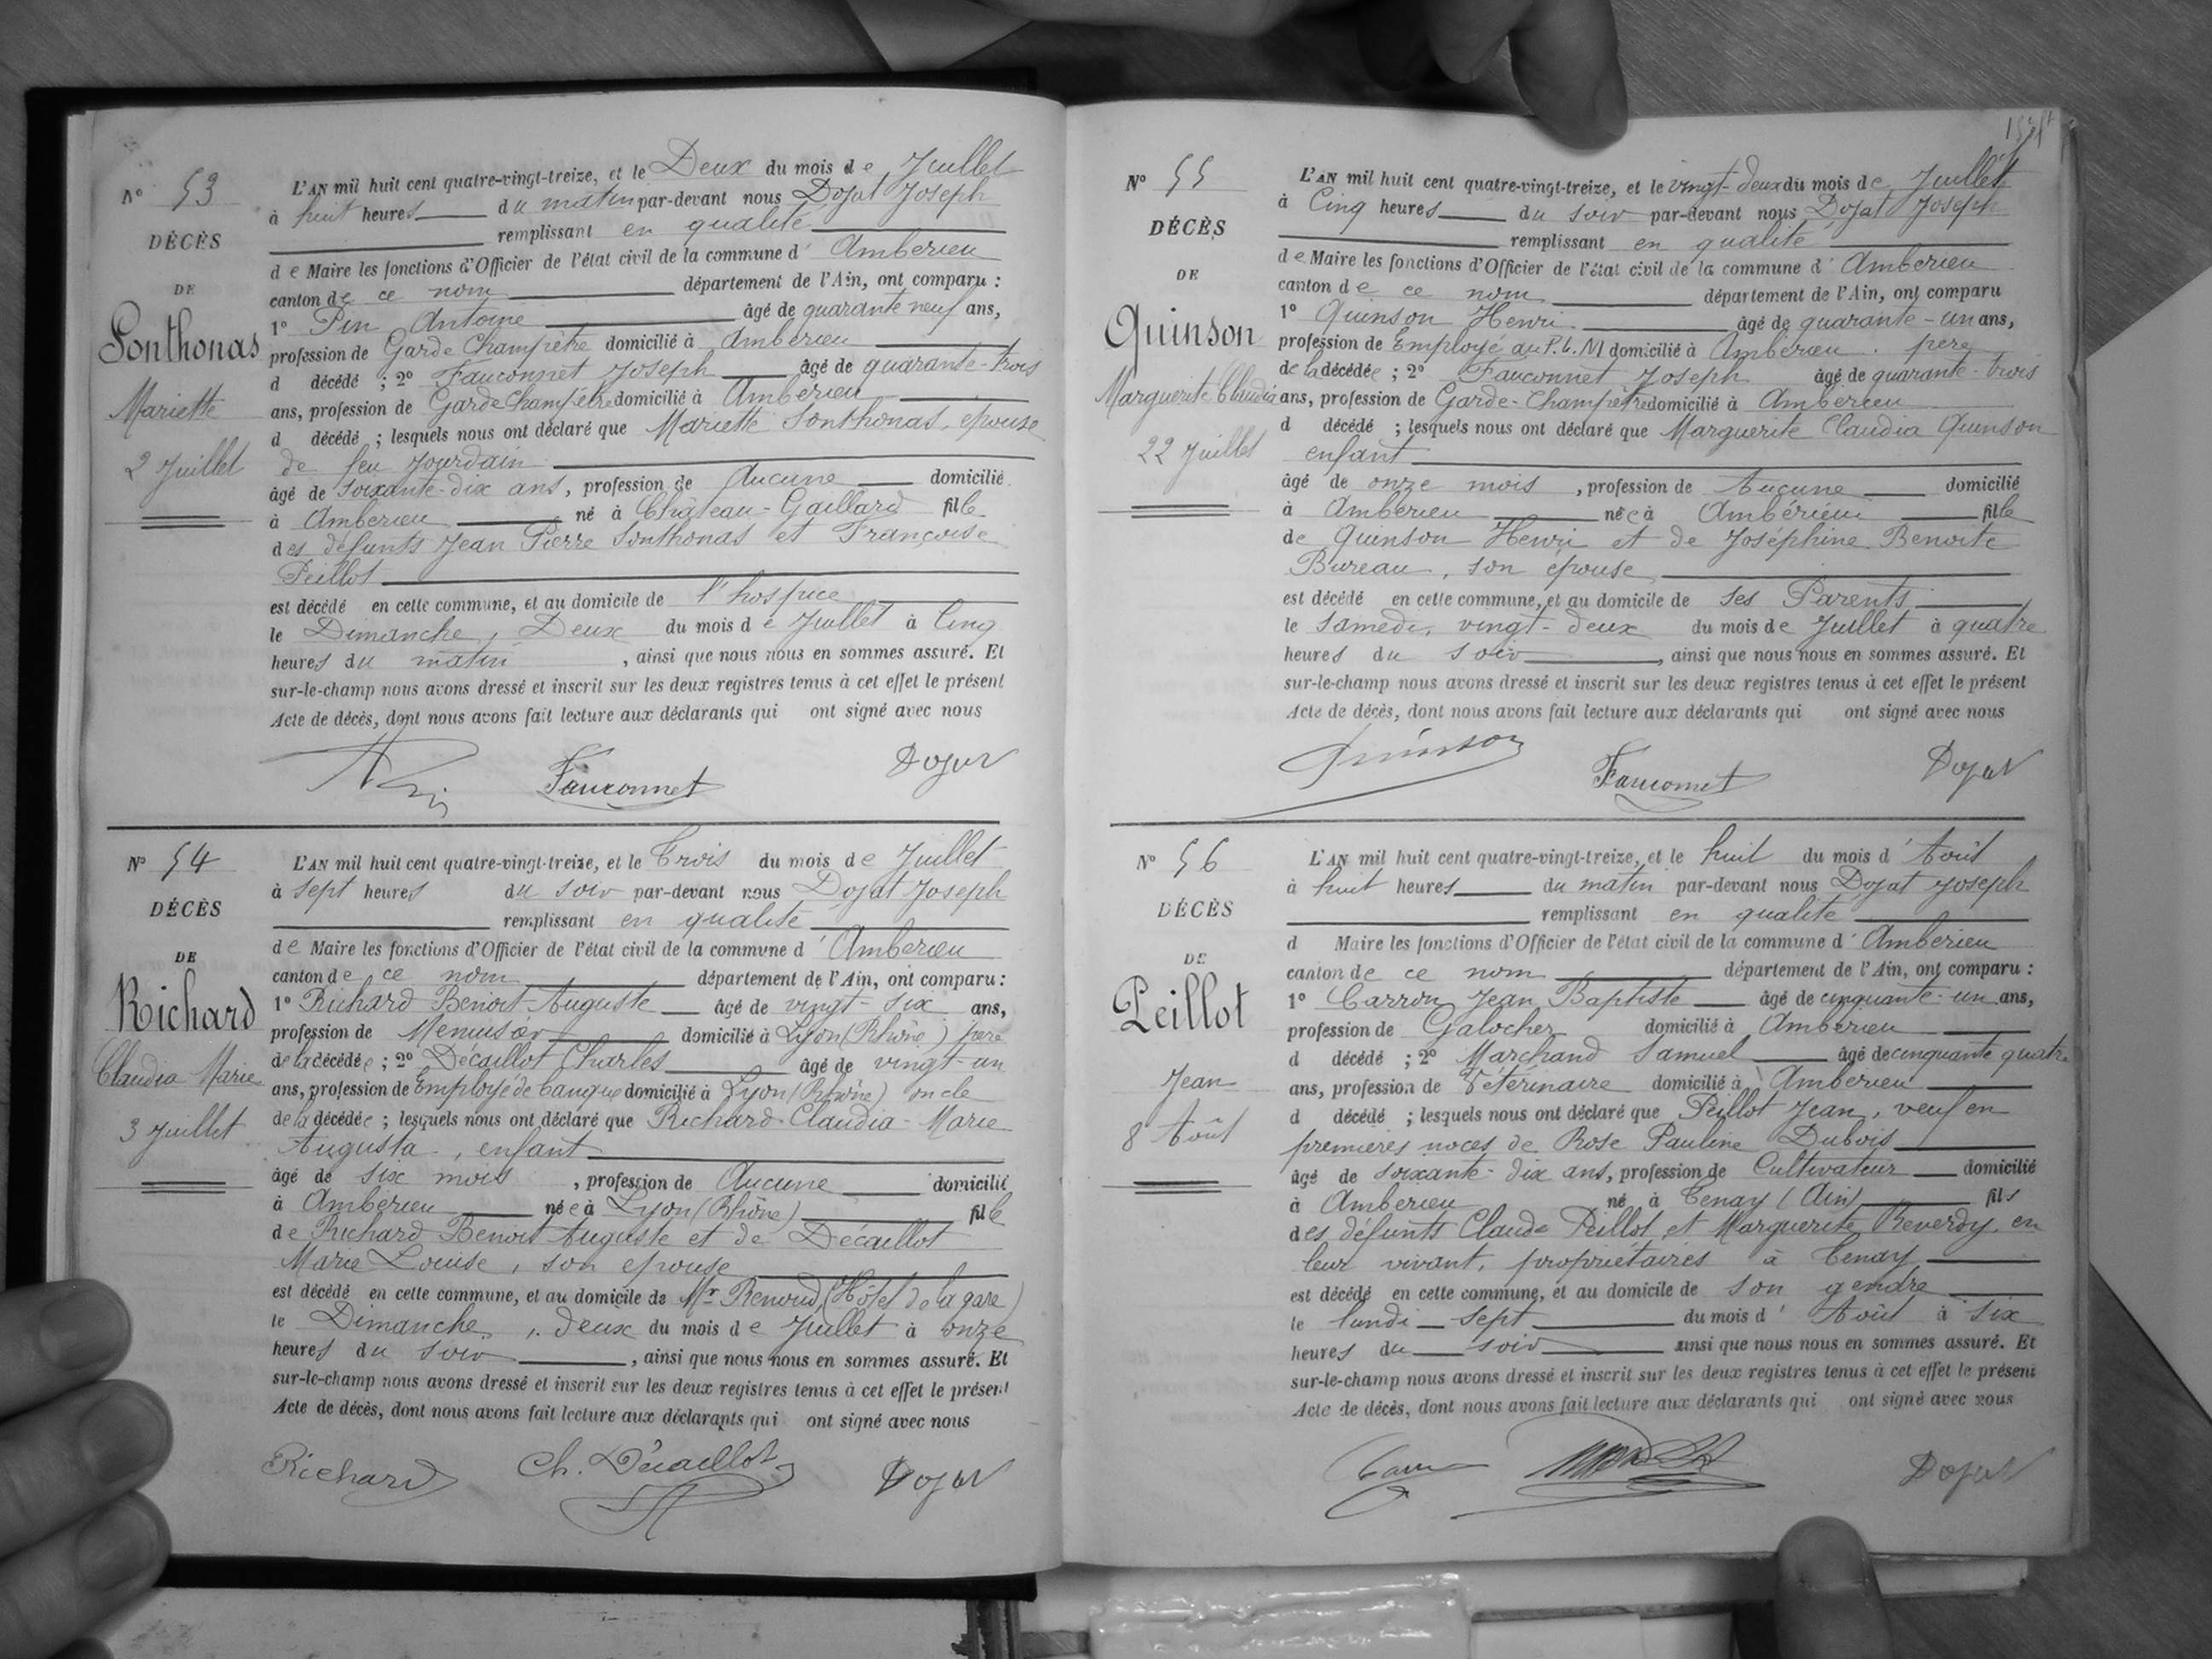 N° 53
DÉCÈS
DE
Sonthonas
Mariette
2 Juillet
L'AN mil huit cent quatre-vingt-treize, et le Deux du mois de Juillet
à huit heures du matin par-devant nous Dojat Joseph
remplissant en qualité
de Maire les fonctions d'Officier de l'état civil de la commune d' Amberieu
canton de ce nom département de l'Ain, ont comparu :
1° Pin Antoine âgé de quarante neuf ans,
profession de Garde Champêtre domicilié à Amberieu
d décédé ; 2° Fauconnet Joseph âgé de quarante-trois
ans, profession de Garde Champêtre domicilié à Amberieu
d décédé ; lesquels nous ont déclaré que Mariette Sonthonas, epouse
de feu Jourdain
âgé de soixante-dix ans, profession de Aucune domicilié
à Amberieu né à Château-Gaillard fille
des défunts Jean Pierre Sonthonas et Françoise
Peillot
est décédé en cette commune, et au domicile de l'hospice
le Dimanche, Deux du mois de Juillet à Cinq
heures du matin, ainsi que nous nous en sommes assuré. Et
sur-le-champ nous avons dressé et inscrit sur les deux registres tenus à cet effet le présent
Acte de décès, dont nous avons fait lecture aux déclarants qui ont signé avec nous
Fauconnet Dojat
N° 54
DÉCÈS
DE
Richard
Claudia Marie
3 Juillet
L'AN mil huit cent quatre-vingt-treize, et le Trois du mois de Juillet
à sept heures du soir par-devant nous Dojat Joseph
remplissant en qualité
de Maire les fonctions d'Officier de l'état civil de la commune d' Amberieu
canton de ce nom département de l'Ain, ont comparu :
1° Richard Benoit-Auguste âgé de vingt-six ans,
profession de Menusier domicilié à Lyon (Rhône) père
de la décédée ; 2° Décaillot Charles âgé de vingt-un
ans, profession de Employé de banque domicilié à Lyon (Rhône) oncle
de la décédée ; lesquels nous ont déclaré que Richard-Claudia-Marie
Augusta, enfant
âgé de six mois, profession de Aucune domicilié
à Amberieu née à Lyon (Rhône) fille
de Richard Benoit Auguste et de Décaillot
Marie Louise, son epouse
est décédé en cette commune, et au domicile de Mr Renoud, (Hôtel de la gare)
le Dimanche, deux du mois de Juillet à onze
heures du soir, ainsi que nous nous en sommes assuré. Et
sur-le-champ nous avons dressé et inscrit sur les deux registres tenus à cet effet le présent
Acte de décès, dont nous avons fait lecture aux déclarants qui ont signé avec nous
Richard Ch. Décaillot Dojat
N° 55
DÉCÈS
DE
Quinson
Marguerite Claudia
22 Juillet
L'AN mil huit cent quatre-vingt-treize, et le vingt-deux du mois de Juillet
à Cinq heures du soir par-devant nous Dojat Joseph
remplissant en qualité
de Maire les fonctions d'Officier de l'état civil de la commune d' Amberieu
canton de ce nom département de l'Ain, ont comparu
1° Quinson Henri âgé de quarante-un ans,
profession de Employé au P.L.M domicilié à Amberieu. père
de la décédée ; 2° Fauconnet Joseph âgé de quarante-trois
ans, profession de Garde-Champêtre domicilié à Amberieu
d décédé ; lesquels nous ont déclaré que Marguerite Claudia Quinson
enfant
âgé de onze mois, profession de Aucune domicilié
à Amberieu née à Ambérieu fille
de Quinson Henri et de Joséphine Benoite
Bureau, son épouse
est décédé en cette commune, et au domicile de ses Parents
le Samedi, vingt-deux du mois de Juillet à quatre
heures du soir, ainsi que nous nous en sommes assuré. Et
sur-le-champ nous avons dressé et inscrit sur les deux registres tenus à cet effet le présent
Acte de décès, dont nous avons fait lecture aux déclarants qui ont signé avec nous
Quinson Fauconnet Dojat
N° 56
DÉCÈS
DE
Peillot
Jean
8 Août
L'AN mil huit cent quatre-vingt-treize, et le huit du mois d' Août
à huit heures du matin par-devant nous Dojat Joseph
remplissant en qualité
d Maire les fonctions d'Officier de l'état civil de la commune d' Amberieu
canton de ce nom département de l'Ain, ont comparu :
1° Carron Jean Baptiste âgé de cinquante-un ans,
profession de Galocher domicilié à Amberieu
d décédé ; 2° Marchand Samuel âgé de cinquante quatre
ans, profession de Vétérinaire domicilié à Amberieu
d décédé ; lesquels nous ont déclaré que Peillot Jean, veuf en
premières noces de Rose Pauline Dubois
âgé de soixante-dix ans, profession de Cultivateur domicilié
à Amberieu né à Tenay (Ain) fils
des défunts Claude Peillot et Marguerite Reverdy, en
leur vivant, propriétaires à Tenay
est décédé en cette commune, et au domicile de son gendre
le lundi sept du mois d' Août à six
heures du soir ainsi que nous nous en sommes assuré. Et
sur-le-champ nous avons dressé et inscrit sur les deux registres tenus à cet effet le présent
Acte de décès, dont nous avons fait lecture aux déclarants qui ont signé avec nous
Dojat